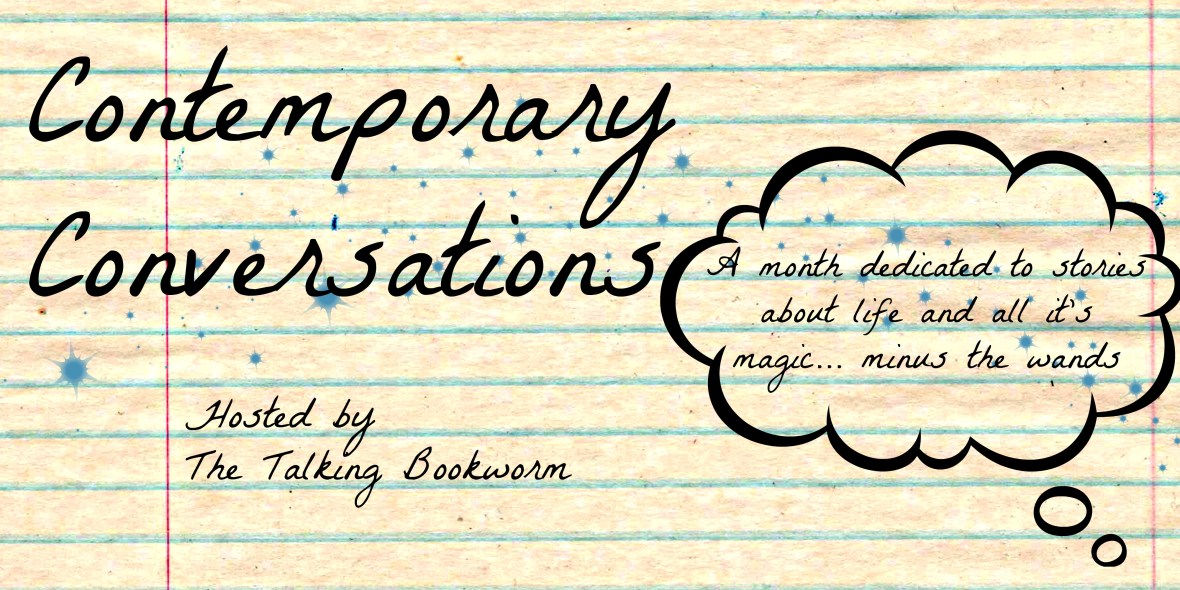 Contemporary
Conversations
A month dedicated to stories
about life and all it's
magic... minus the wands
Hosted by
The Talking Bookworm